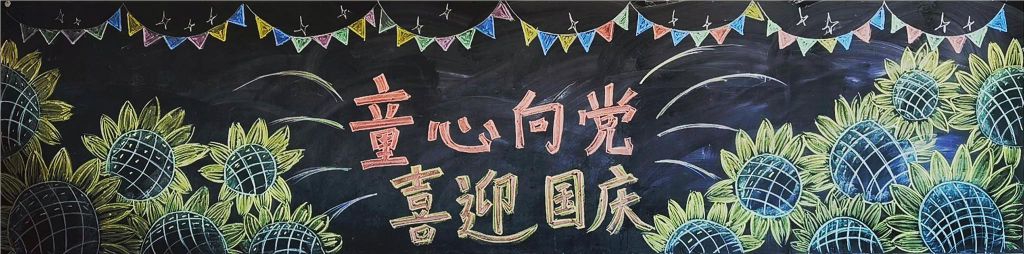 童心向党
喜迎国庆